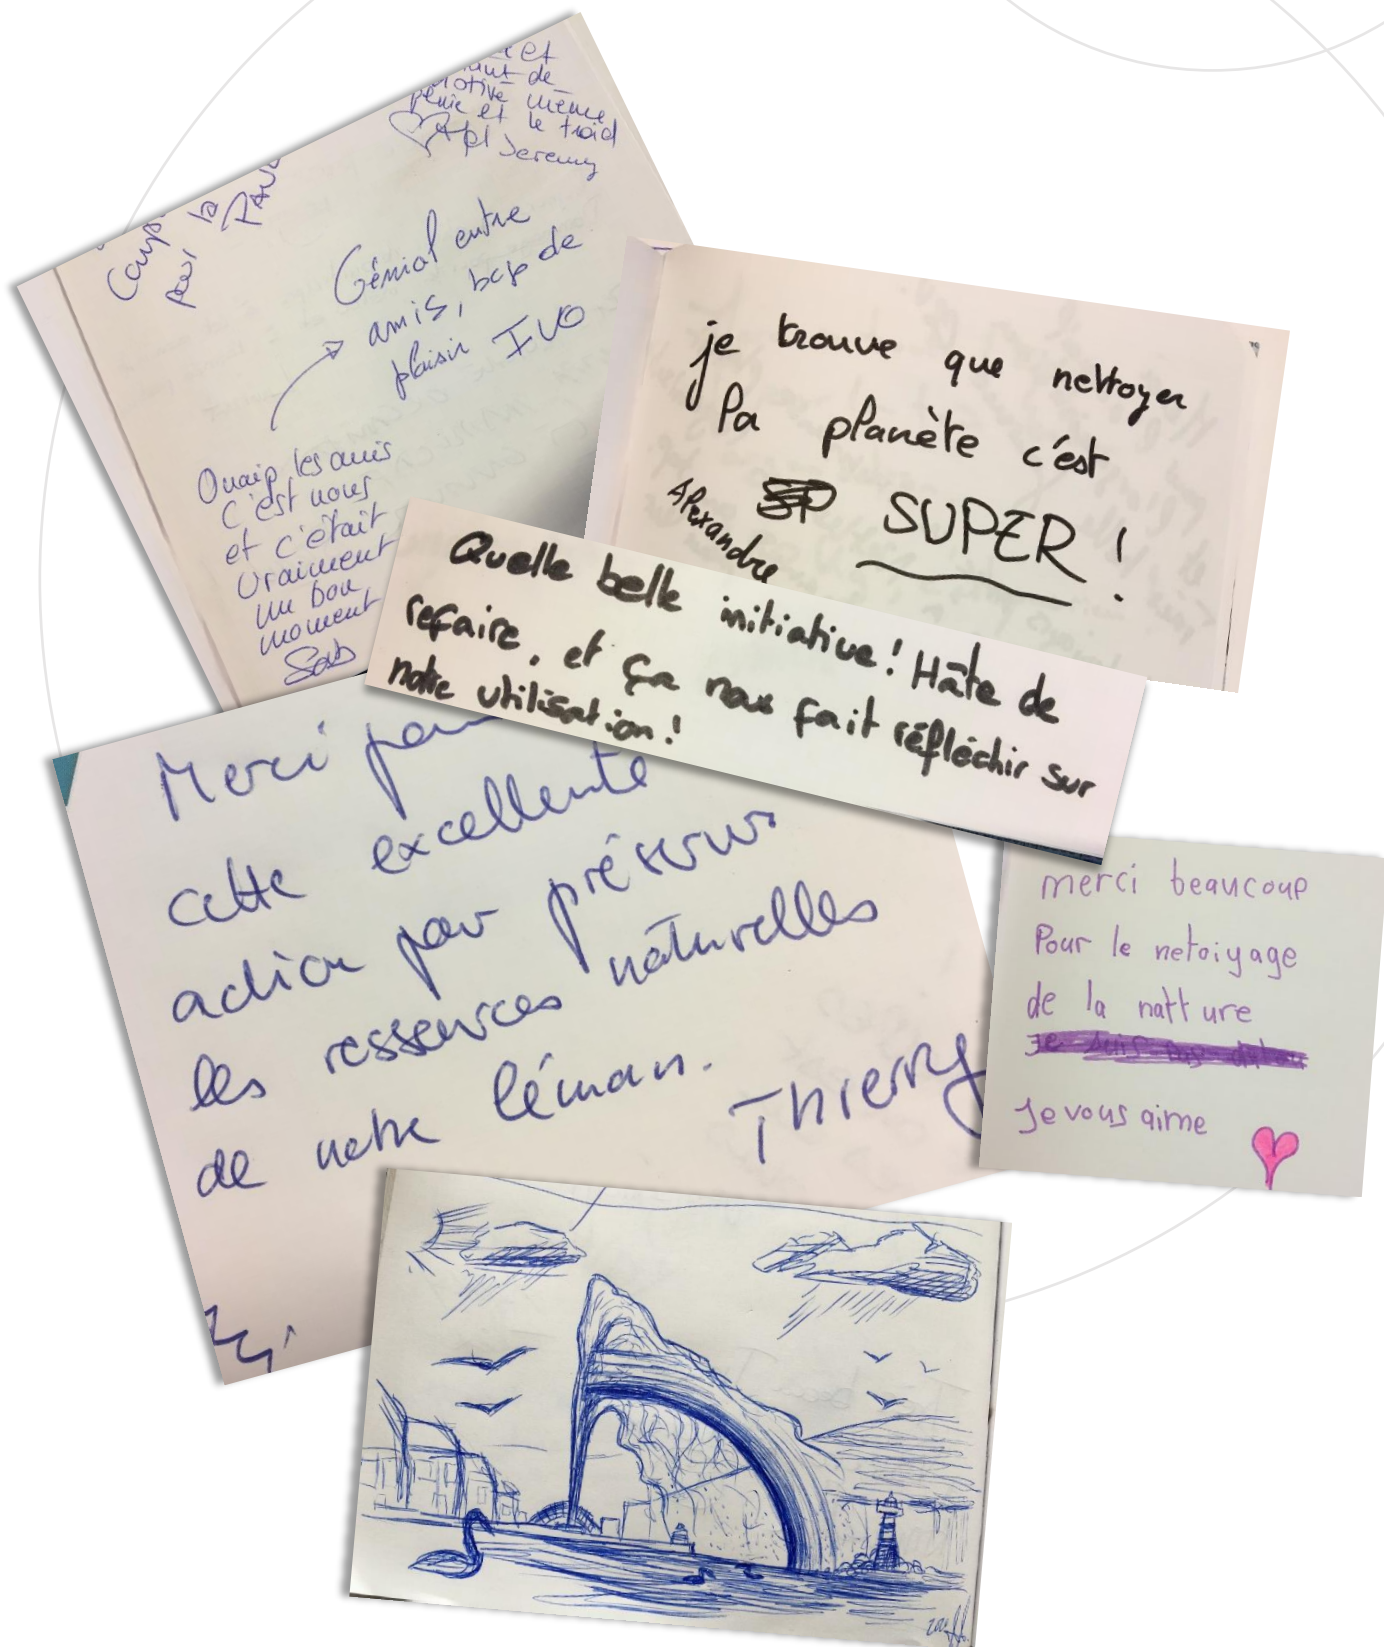 et
de
même
pluie et le froid
Jeremy
Coup
pour la
Génial entre
amis, bcp de
plaisir IVO
Ouaip les amis
C'est nous
et c'était
vraiment
un bon
moment
Sab
je trouve que nettoyer
la planète c'est
SUPER !
Alexandre
Quelle belle initiative ! Hâte de
refaire, et ça nous fait réfléchir sur
notre utilisation !
Merci
cette excellente
action pour préserver
les ressources naturelles
de notre léman.
Thierry
merci beaucoup
Pour le netoiyage
de la natture
Je vous aime